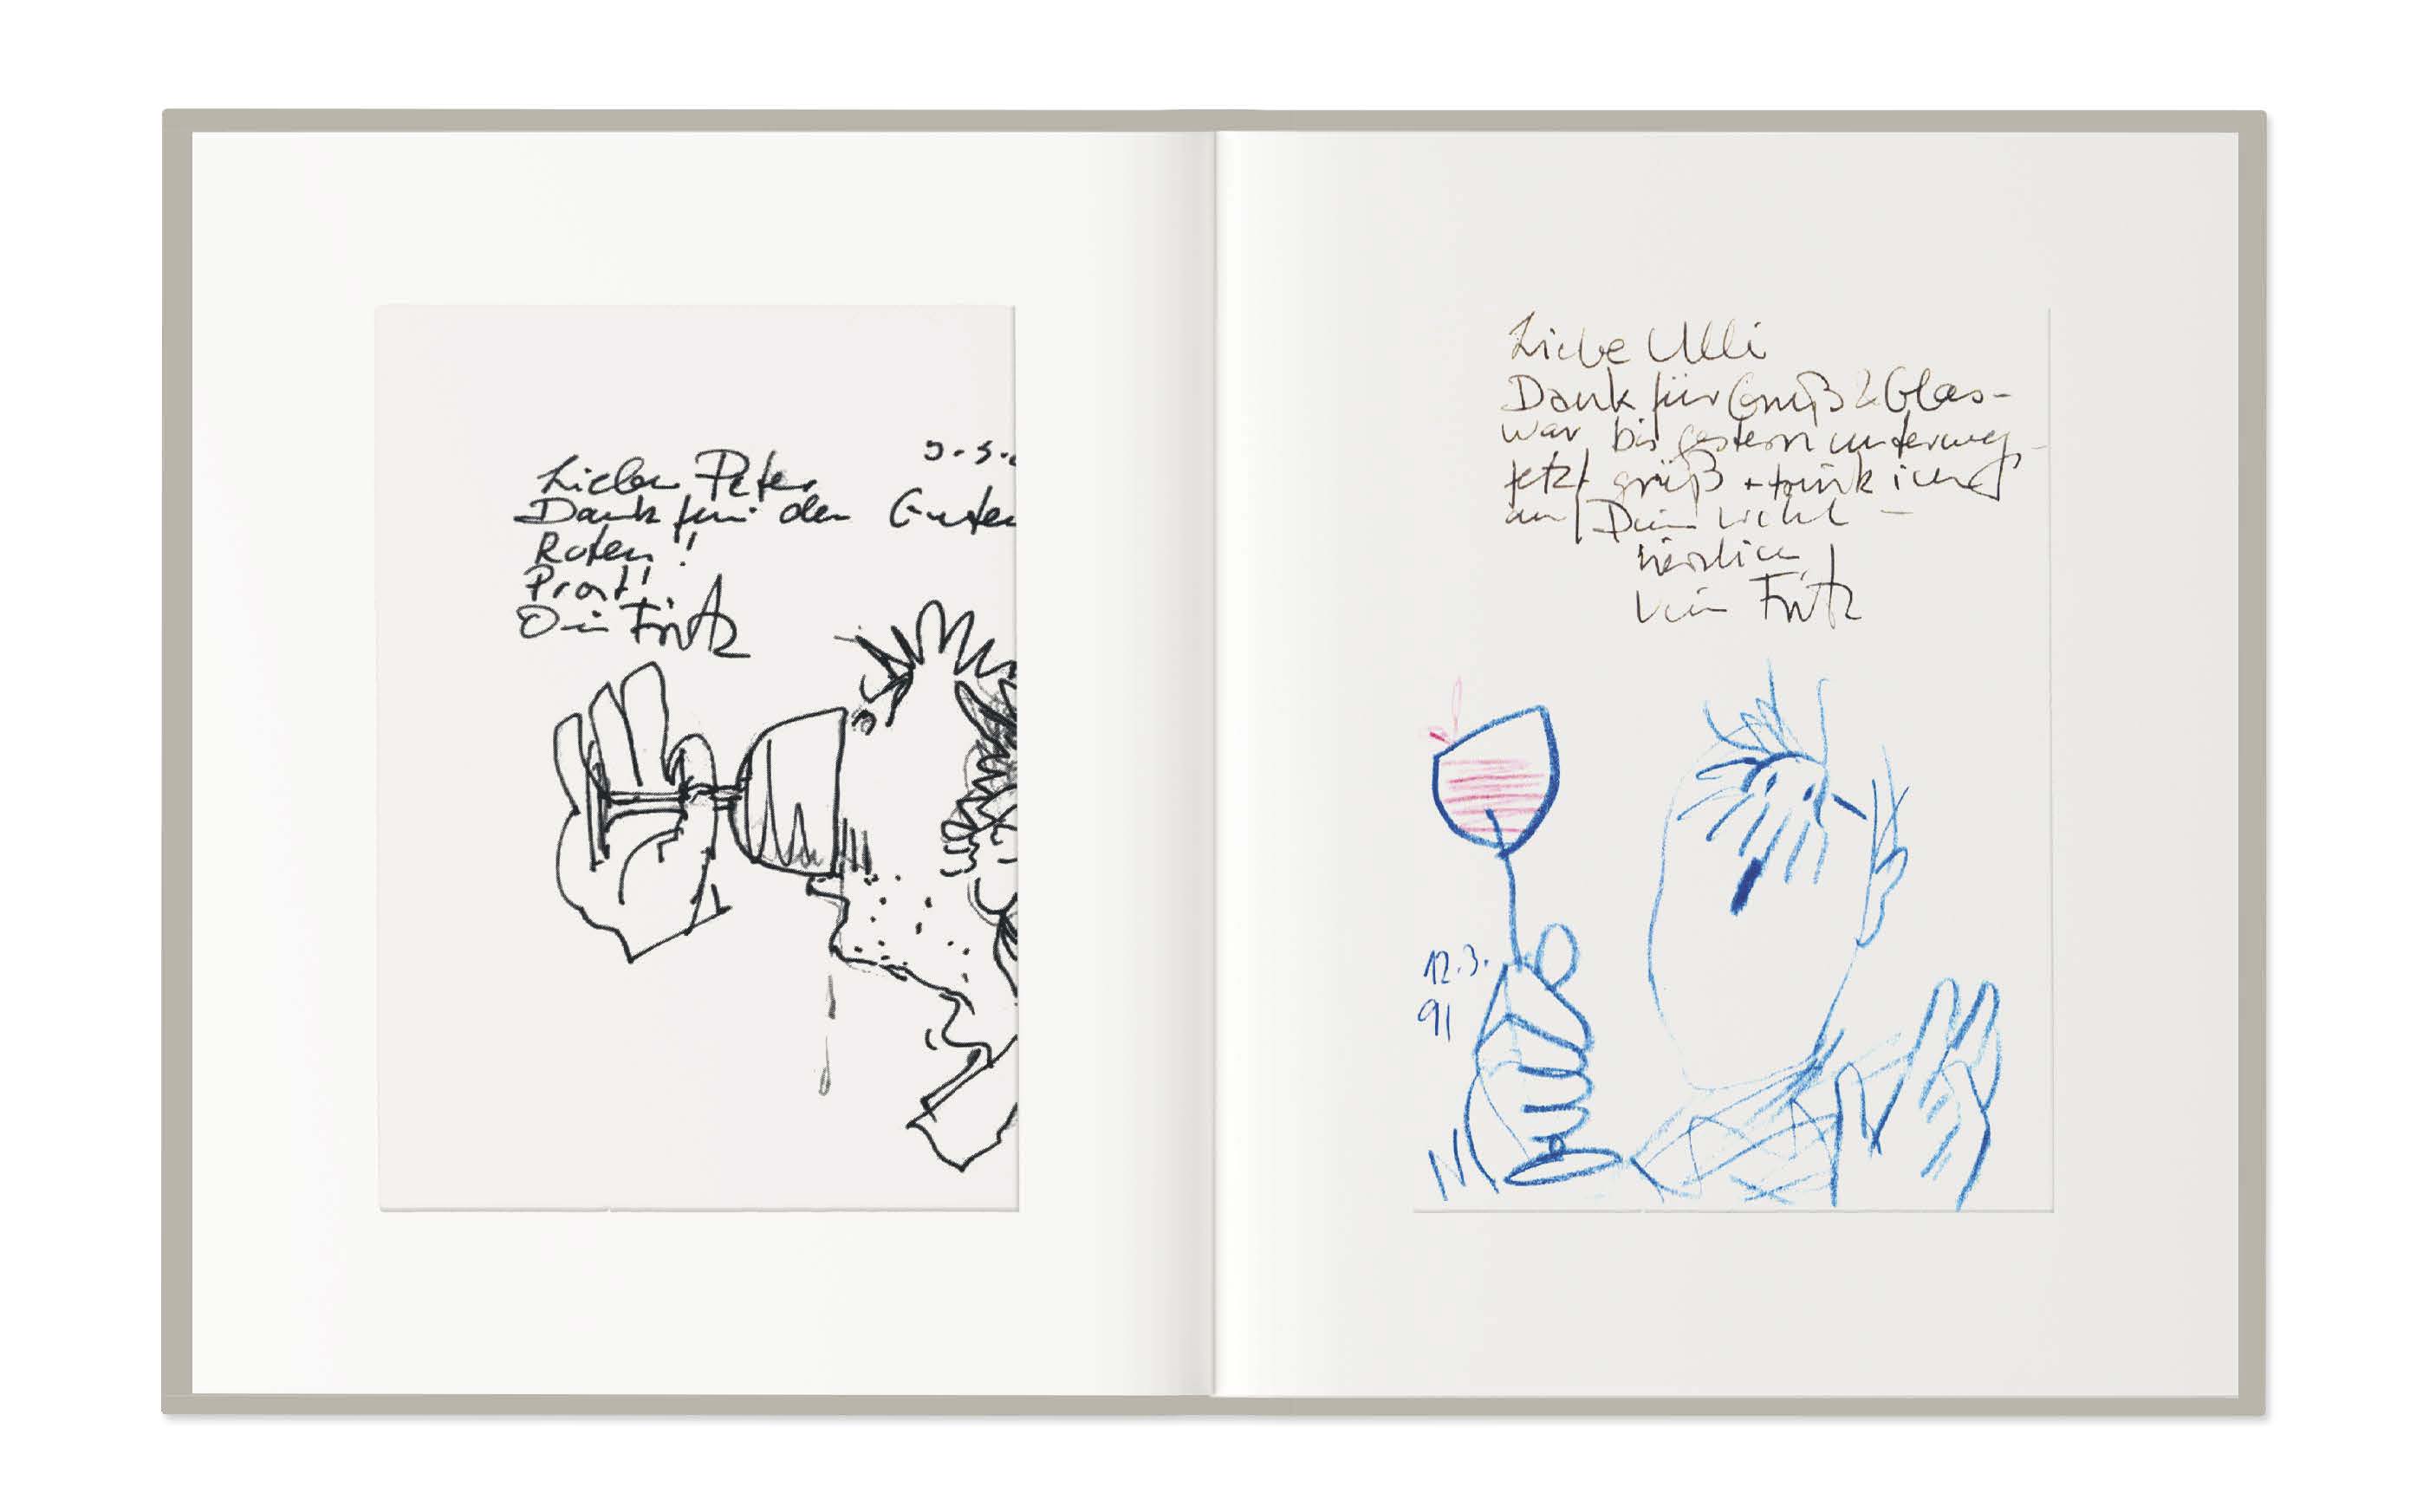 9.3.
Lieber Peter
Dank für den Guten
Roten!!
Prost!
Dein Fritz
Liebe Ulli
Dank für Gruß & Glas-
war bis gestern unterweg-
jetzt grüß + trink ich
auf Dein Wohl –
herzlich
Dein Fritz
12.3.
91